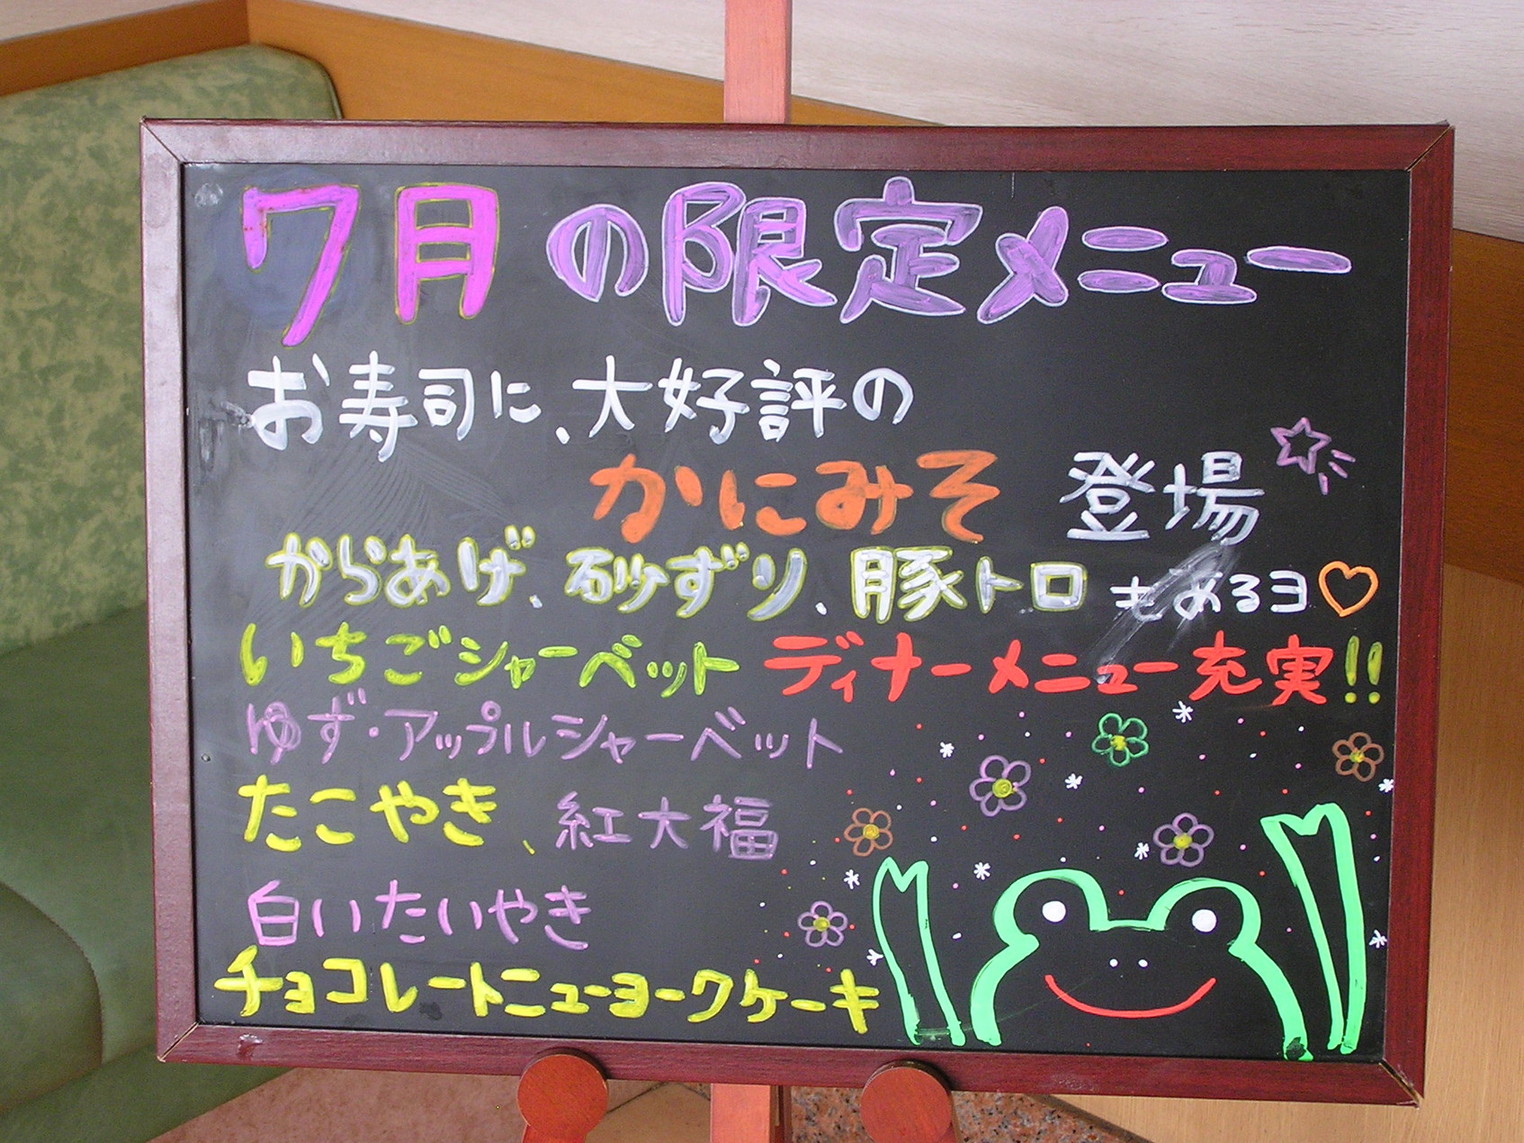 7月の限定メニュー
お寿司に、大好評の
かにみそ 登場
からあげ、砂ずり、豚トロもあるヨ♡
いちごシャーベット ディナーメニュー充実!!
ゆず・アップルシャーベット
たこやき、紅大福
白いたいやき
チョコレートニューヨークケーキ